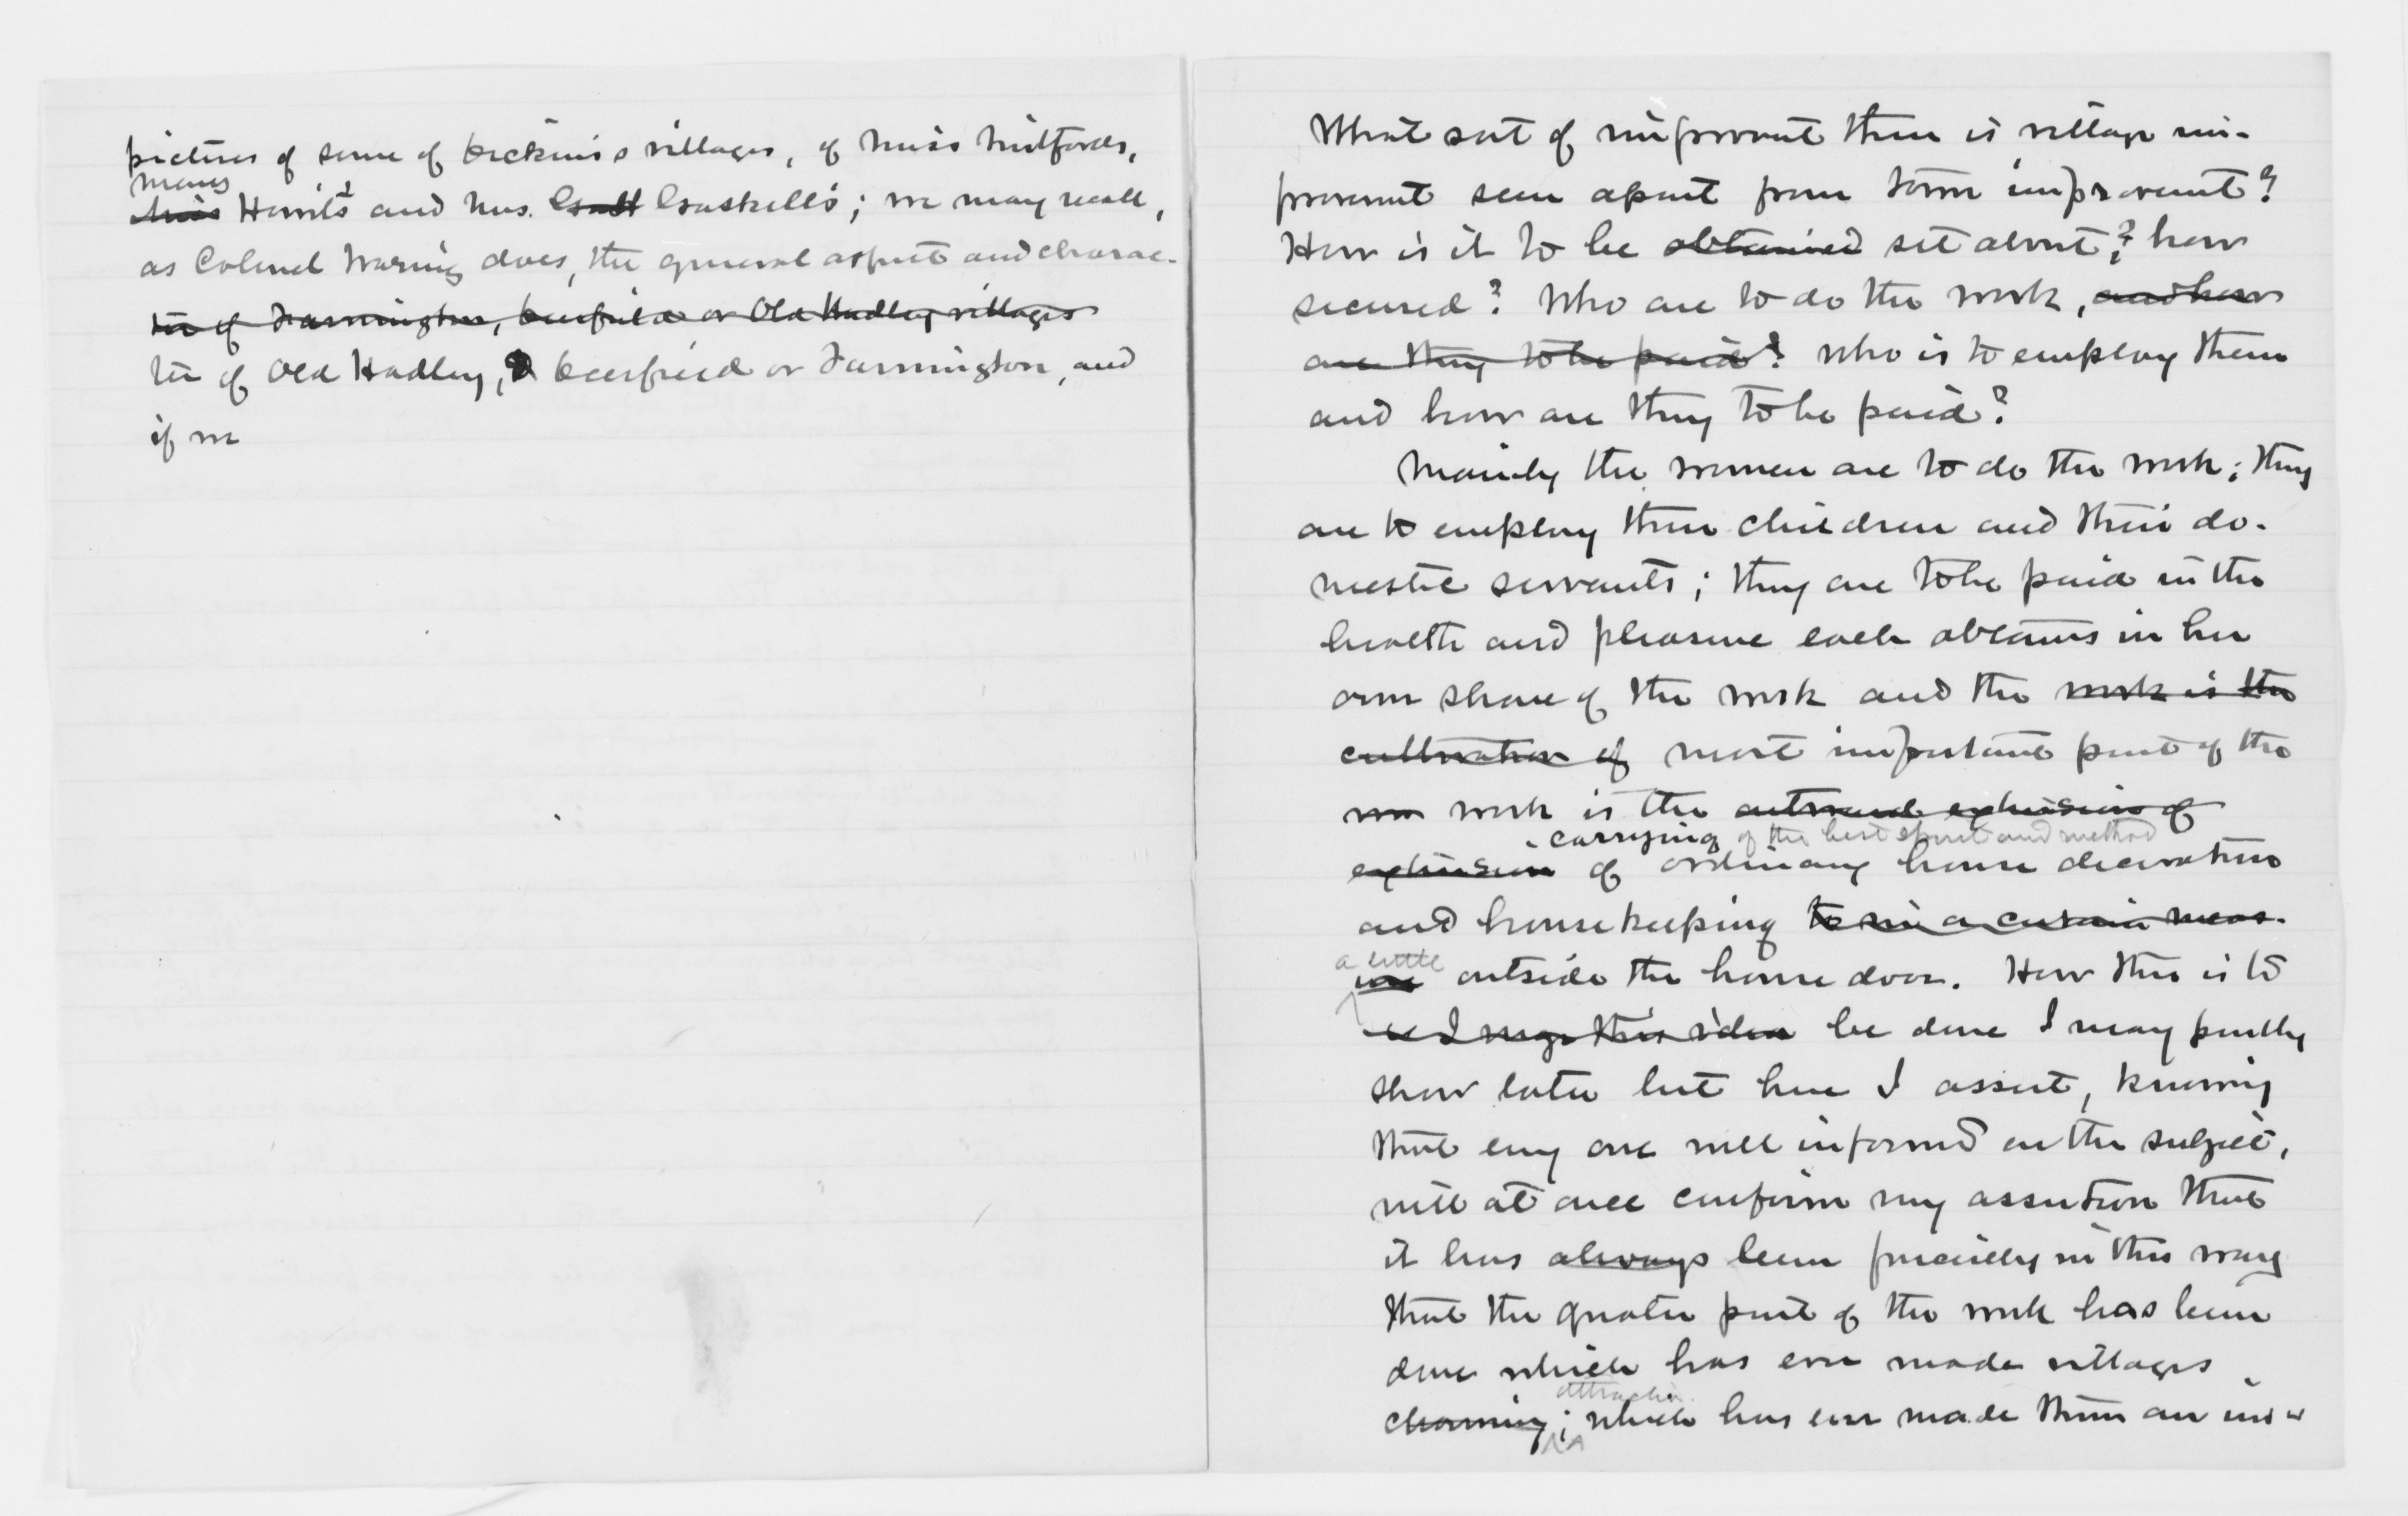 pictures of some of Dickens's villages, of Miss Mitfords,
Mary
Miss Howitt's and Mrs. Gaskell's; we may recall,
as Colonel Waring does, the general aspect and charac-
ter of Farmington, Deerfield or Old Hadley villages
ter of Old Hadley, Deerfield or Farmington, and
if we
What sort of improvement then is village im-
provement seen apart from town improvement?
How is it to be obtained set about? how
secured? Who are to do the work, and how
are they to be paid? Who is to employ them
and how are they to be paid?
Mainly the women are to do the work; they
are to employ their children and their do-
mestic servants; they are to be paid in the
health and pleasure each obtains in her
own share of the work and the work is the
cultivation of most important part of the
work is the outward extension of
carrying of the best spirit and method
extension of ordinary house decoration
and housekeeping to in a certain meas-
a little
ure outside the house door. How this is to
as I urge this idea be done I may partly
show later but here I assert, knowing
that any one well informed on the subject,
will at once confirm my assertion that
it has always been precisely in this way
that the greater part of the work has been
done which has ever made villages
attractive
charming; which has ever made them an in-